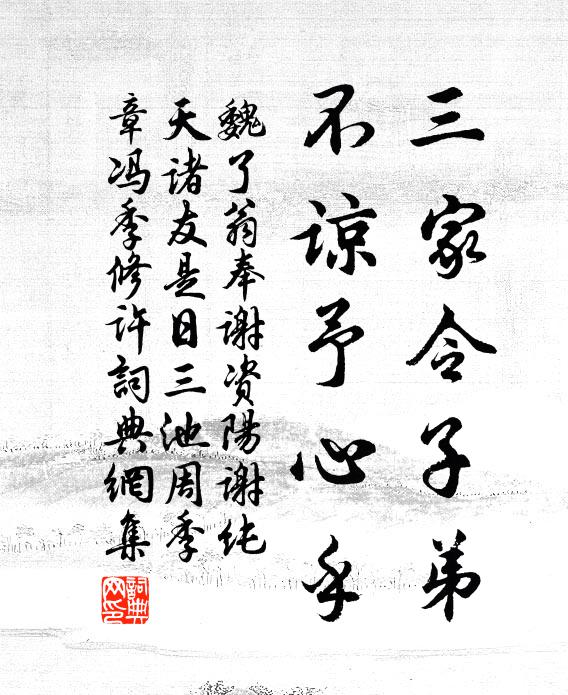 三家令子弟
不諒予心乎
魏了翁奉謝资陽谢纯
天诸友是日三池周季
章冯季修许詞典網集
詞典
网印